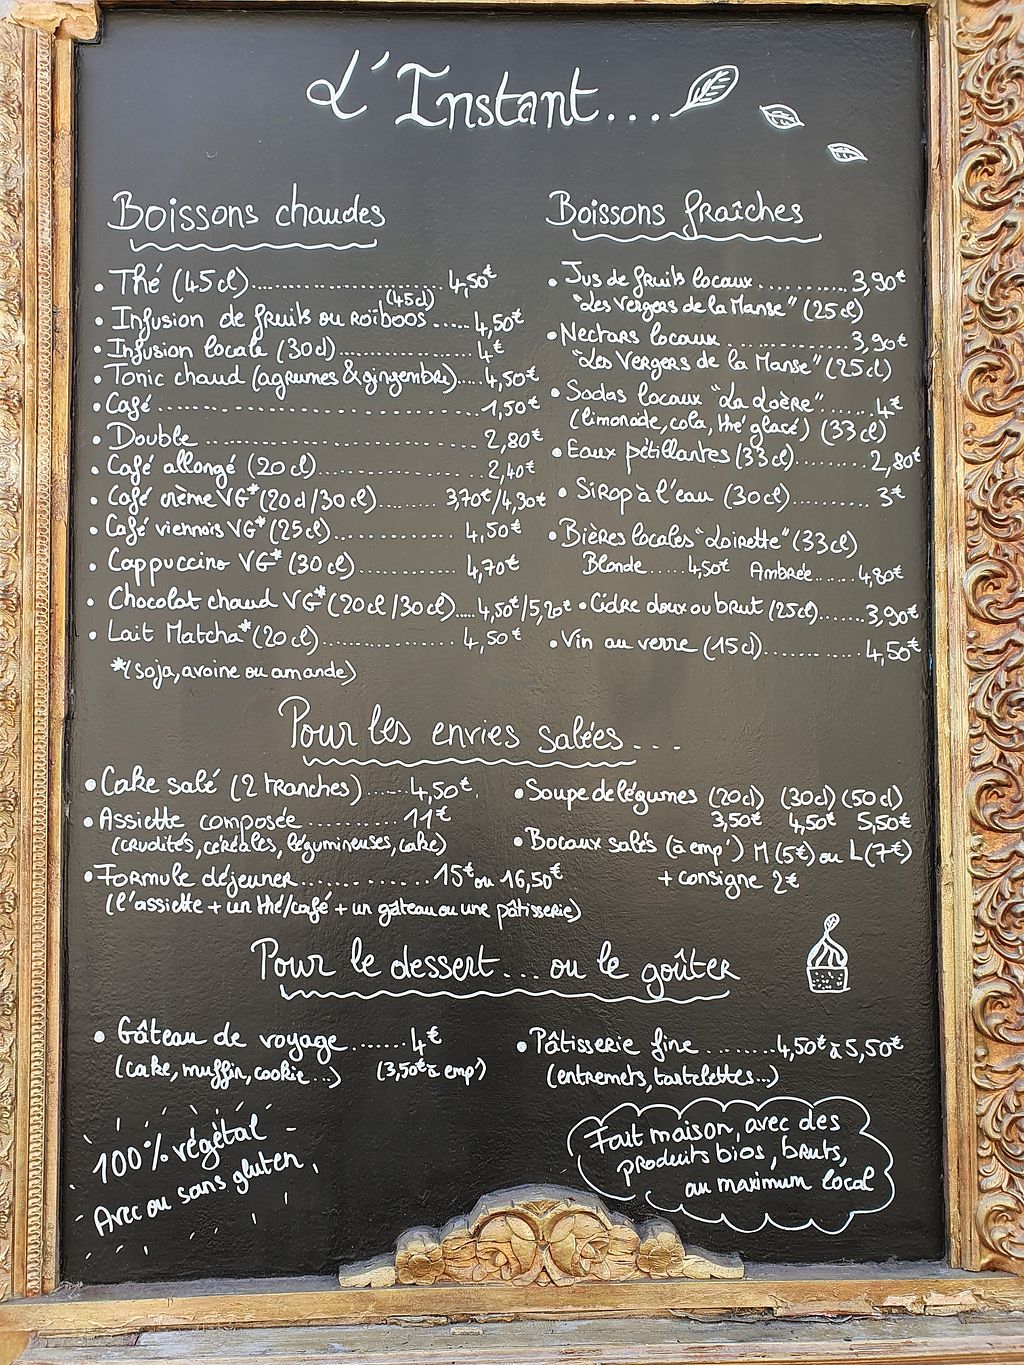 L'Instant...
Boissons chaudes
• Thé (45cl)........................ 4,50€
• Infusion de fruits ou roïboos (45cl)..... 4,50€
• Infusion locale (30cl)................... 4€
• Tonic chaud (agrumes & gingembre)..... 4,50€
• Café................................ 1,50€
• Double............................. 2,80€
• Café allongé (20cl).................. 2,40€
• Café crème VG* (20cl/30cl)........ 3,70€/4,30€
• Café viennois VG* (25cl)............. 4,50€
• Cappuccino VG* (30cl)............... 4,70€
• Chocolat chaud VG* (20cl/30cl)....4,50€/5,20€
• Lait Matcha* (20cl).................. 4,50€
*(soja, avoine ou amande)
Boissons fraîches
• Jus de fruits locaux ........... 3,90€
"Les Vergers de la Manse" (25cl)
• Nectars locaux ............... 3,90€
"Les Vergers de la Manse" (25cl)
• Sodas locaux "La Loère"....... 4€
(limonade, cola, thé glacé) (33cl)
• Eaux pétillantes (33cl)......... 2,80€
• Sirop à l'eau (30cl)........... 3€
• Bières locales "Loirette" (33cl)
Blonde..... 4,50€ Ambrée...... 4,80€
• Cidre doux ou brut (25cl)....... 3,90€
• Vin au verre (15cl)............. 4,50€
Pour les envies salées...
• Cake salé (2 tranches)...... 4,50€
• Assiette composée........... 11€
(crudités, céréales, légumineuses, cake)
• Formule déjeuner............ 15€ ou 16,50€
(l'assiette + un thé/café + un gâteau ou une pâtisserie)
• Soupe de légumes (20cl) (30cl) (50cl)
3,50€ 4,50€ 5,50€
• Bocaux salés (à emp') M (5€) ou L (7€)
+ consigne 2€
Pour le dessert... ou le goûter
• Gâteau de voyage....... 4€
(cake, muffin, cookie...) (3,50€ à emp')
• Pâtisserie fine ........4,50€ à 5,50€
(entremets, tartelettes...)
100% végétal
Avec ou sans gluten
Fait maison, avec des
produits bios, bruts,
au maximum local